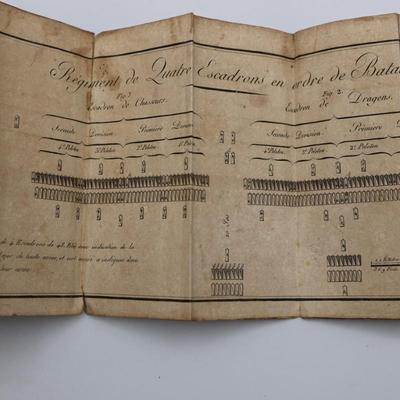 Régiment de Quatre Escadrons en ordre de Batai
Fig. 3
Escadron de Chasseurs.
Seconde Division Première Division
4.e Peloton 3.e Peloton 2.e Peloton 1.er Peloton
Fig. 2.
Escadron de Dragons.
Seconde Division. Première
4.e Peloton 3.e Peloton 2.e Peloton
de 4 Escadrons de 48 indication de la
de toute arme, et sert aussi a indiquer dans
leur arme